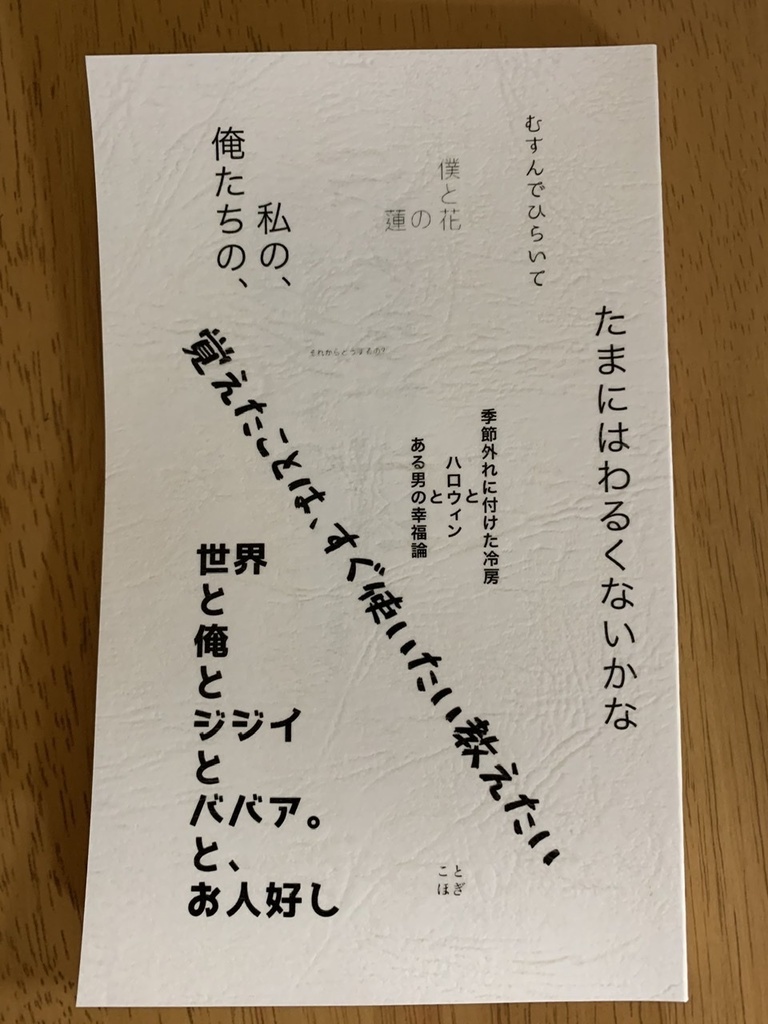 むすんでひらいて
たまにはわるくないかな
僕と花
の蓮
私の、
俺たちの、
それからどうするの?
季節外れに付けた冷房
と
ハロウィン
と
ある男の幸福論
覚えたことは、すぐ使いたい教えたい
世界
と
俺
と
ジジイ
と
ババア。
と、
お人好し
こと
ほぎ